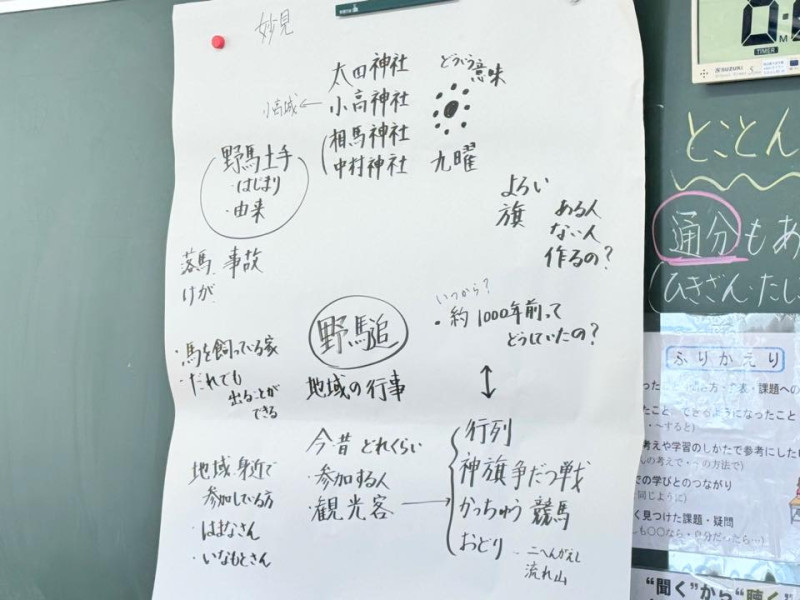 妙見
太田神社
小高城 ← 小高神社
相馬神社
中村神社
どういう意味
九曜
野馬土手
・はじまり
・由来
よろい
旗
ある人
ない人
作るの?
落馬 事故
けが
いつから?
・約1000年前って
どうしていたの?
野馬追
地域の行事
・馬を飼っている家
・だれでも
出ることが
できる
今・昔 どれくらい
・参加する人
・観光客 →
行列
神旗争だつ戦
かっちゅう競馬
おどり
二へんがえし
流れ山
地域 身近で
参加している方
・はまなさん
・いなもとさん
SUZUKI
TIMER
とことん
通分もあ
(ひきざん・たし
ふりかえり
たこと・できるようになったこと
・~すると)
考えや学習のしかたで参考にした
の学びとのつながり
同じように)
く見つけた課題・疑問
“聞く”から“聴く”